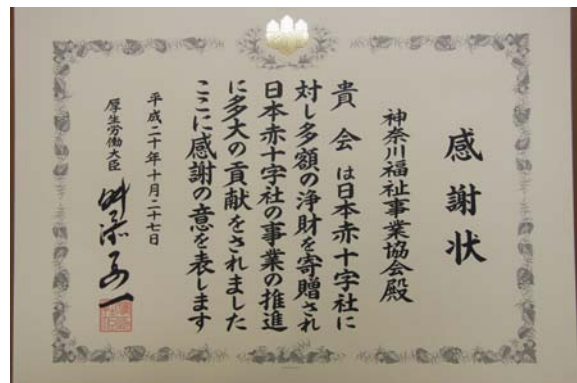 感謝状
神奈川福祉事業協会殿
貴会は日本赤十字社に
対し多額の浄財を寄贈され
日本赤十字社の事業の推進
に多大の貢献をされました
ここに感謝の意を表します
平成二十年十月二十七日
厚生労働大臣 舛添要一